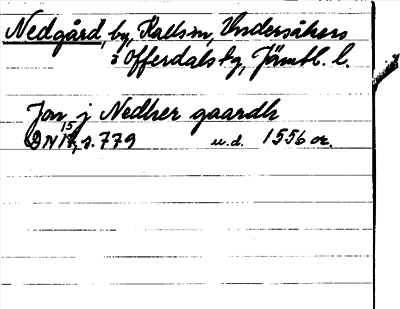 Nedgård, by, Kallsn, Undersåkers
o Offerdals tg, Jämtl. l.
Jon j Nedher gaardh
DN 15, s. 779 u.d. 1556 or.